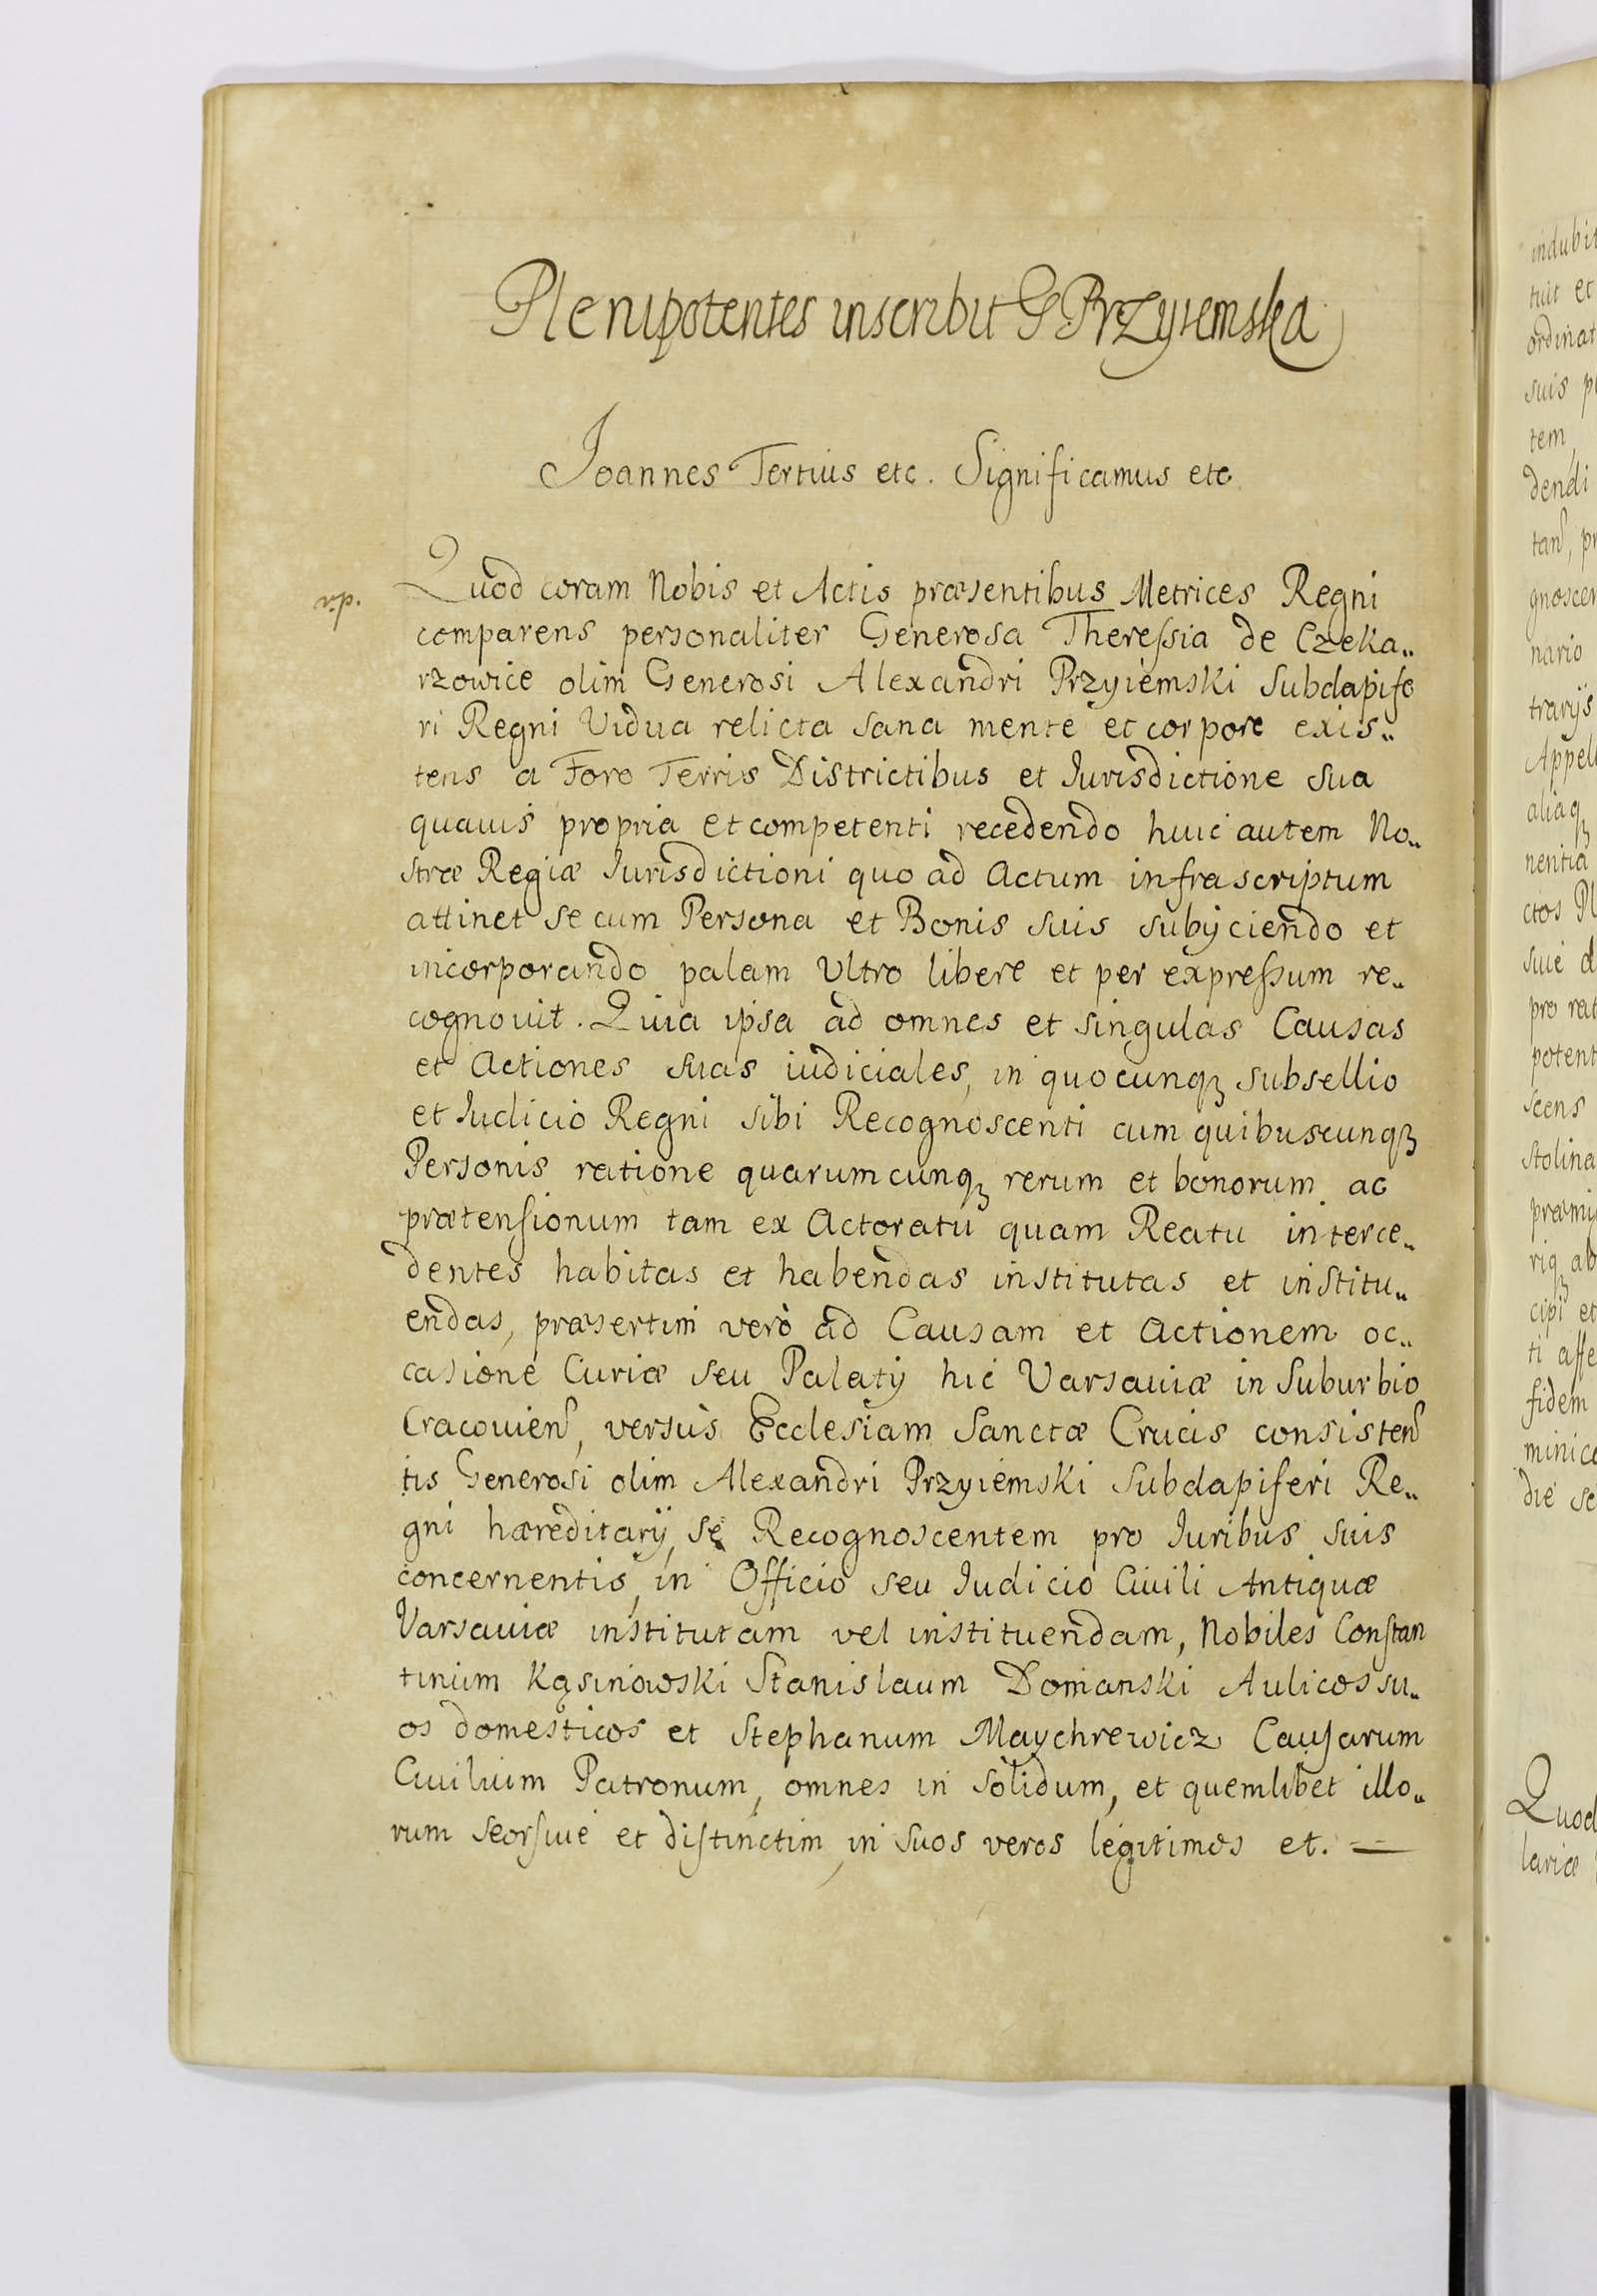 Plenipotentes inscribit G Przyiemska
Joannes Tertius etc. Significamus etc
v.p.
Quod coram Nobis et Actis præsentibus Metrices Regni
comparens personaliter Generosa Theressia de Czeka„
rzowice olim Generosi Alexandri Przyiemski Subdapife
ri Regni Vidua relicta sana mente et corpore exis„
tens a Foro Terris Districtibus et Iurisdictione sua
quauis propria et competenti recedendo huic autem No„
stræ Regiæ Iurisdictioni quo ad Actum infrascriptum
attinet se cum Persona et Bonis suis subijciendo et
incorporando palam Vltro libere et per expressum re„
cognouit. Quia ipsa ad omnes et singulas Causas
et Actiones suas iudiciales, in quocunqȝ subsellio
et Iudicio Regni sibi Recognoscenti cum quibuscunqȝ
Personis ratione quarumcunqȝ rerum et bonorum ac
prætensionum tam ex Actoratu quam Reatu interce„
dentes habitas et habendas institutas et institu„
endas, præsertim verò ad Causam et Actionem oc„
casione Curiæ seu Palatij hic Varsauiæ in Suburbio
Cracouien, versus Ecclesiam Sanctæ Crucis consisten
tis Generosi olim Alexandri Przyiemski Subdapiferi Re„
gni hæreditarij, se Recognoscentem pro Iuribus suis
concernentis, in Officio seu Iudicio Ciuili Antiquæ
Varsauiæ institutam vel instituendam, Nobiles Constan
tinum Kąsinowski Stanislaum Domanski Aulicos su„
os domesticos et Stephanum Maychrewicz Causarum
Ciuilium Patronum, omnes in solidum, et quemlibet illo„
rum seorsiue et distinctim, in suos veros legitimos et. =
indubi
tuit et
ordinat
suis p
tem,
dendi
tan, pr
gnoscen
nario
trarijs
Appell
aliaqȝ
nentia
ctos Pl
siue d
pro rat
potent
scens
stolina
præmi
riqȝ ab
cipi et
ti affe
fidem
minica
die se
Quod
lariæ